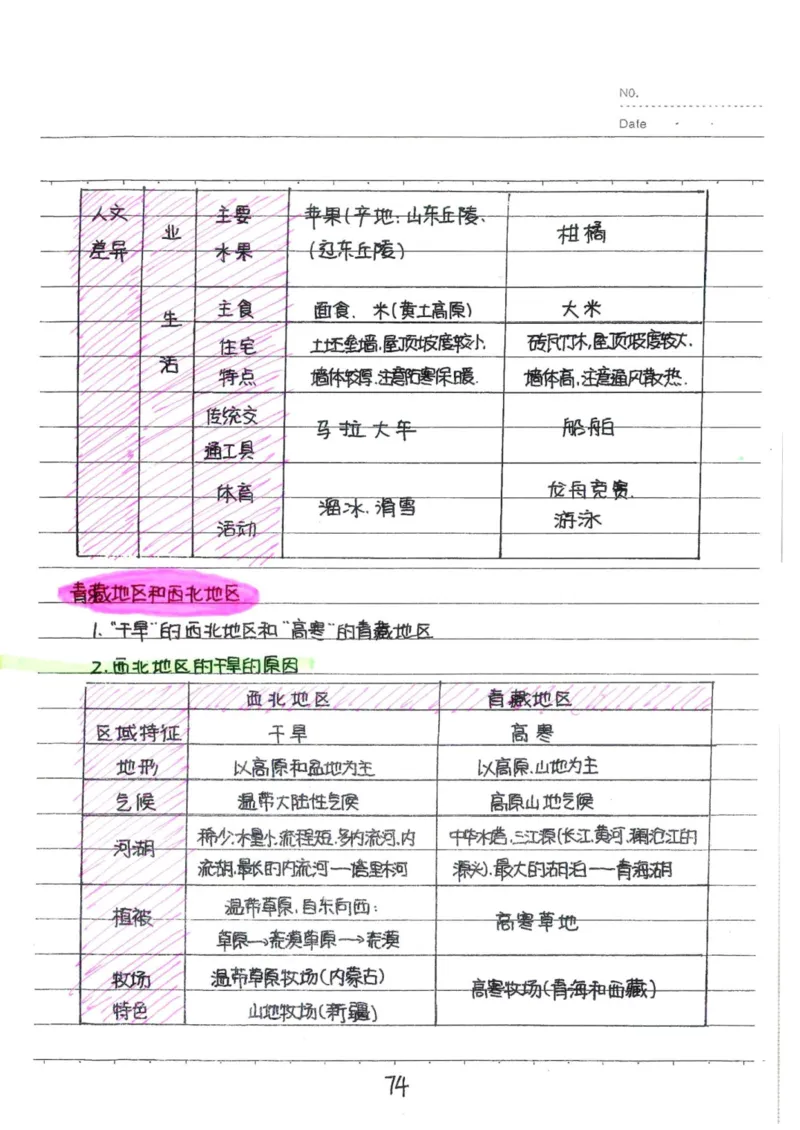 NO.
Date
人文 业 主要 苹果(产地:山东丘陵、 柑橘
差异 水果 (辽东丘陵)
生 主食 面食、米(黄土高原) 大米
活 住宅 土坯垒墙,屋顶坡度较小, 砖瓦竹木,屋顶坡度较大,
特点 墙体较厚,注意防寒保暖. 墙体高,注意通风散热.
传统交 马拉大车 船舶
通工具
体育 溜冰、滑雪 龙舟竞赛、
活动 游泳
青藏地区和西北地区
1."干旱"的西北地区和"高寒"的青藏地区
2.西北地区的干旱的原因
西北地区 青藏地区
区域特征 干旱 高寒
地形 以高原和盆地为主 以高原、山地为主
气候 温带大陆性气候 高原山地气候
河湖 稀少,水量小,流程短,多内流河、内 中华水塔,三江源(长江、黄河、澜沧江的
流湖,最长的内流河——塔里木河 源头),最大的湖泊——青海湖
植被 温带草原,自东向西: 高寒草地
草原→荒漠草原→荒漠
牧场 温带草原牧场(内蒙古) 高寒牧场(青海和西藏)
特色 山地牧场(新疆)
74